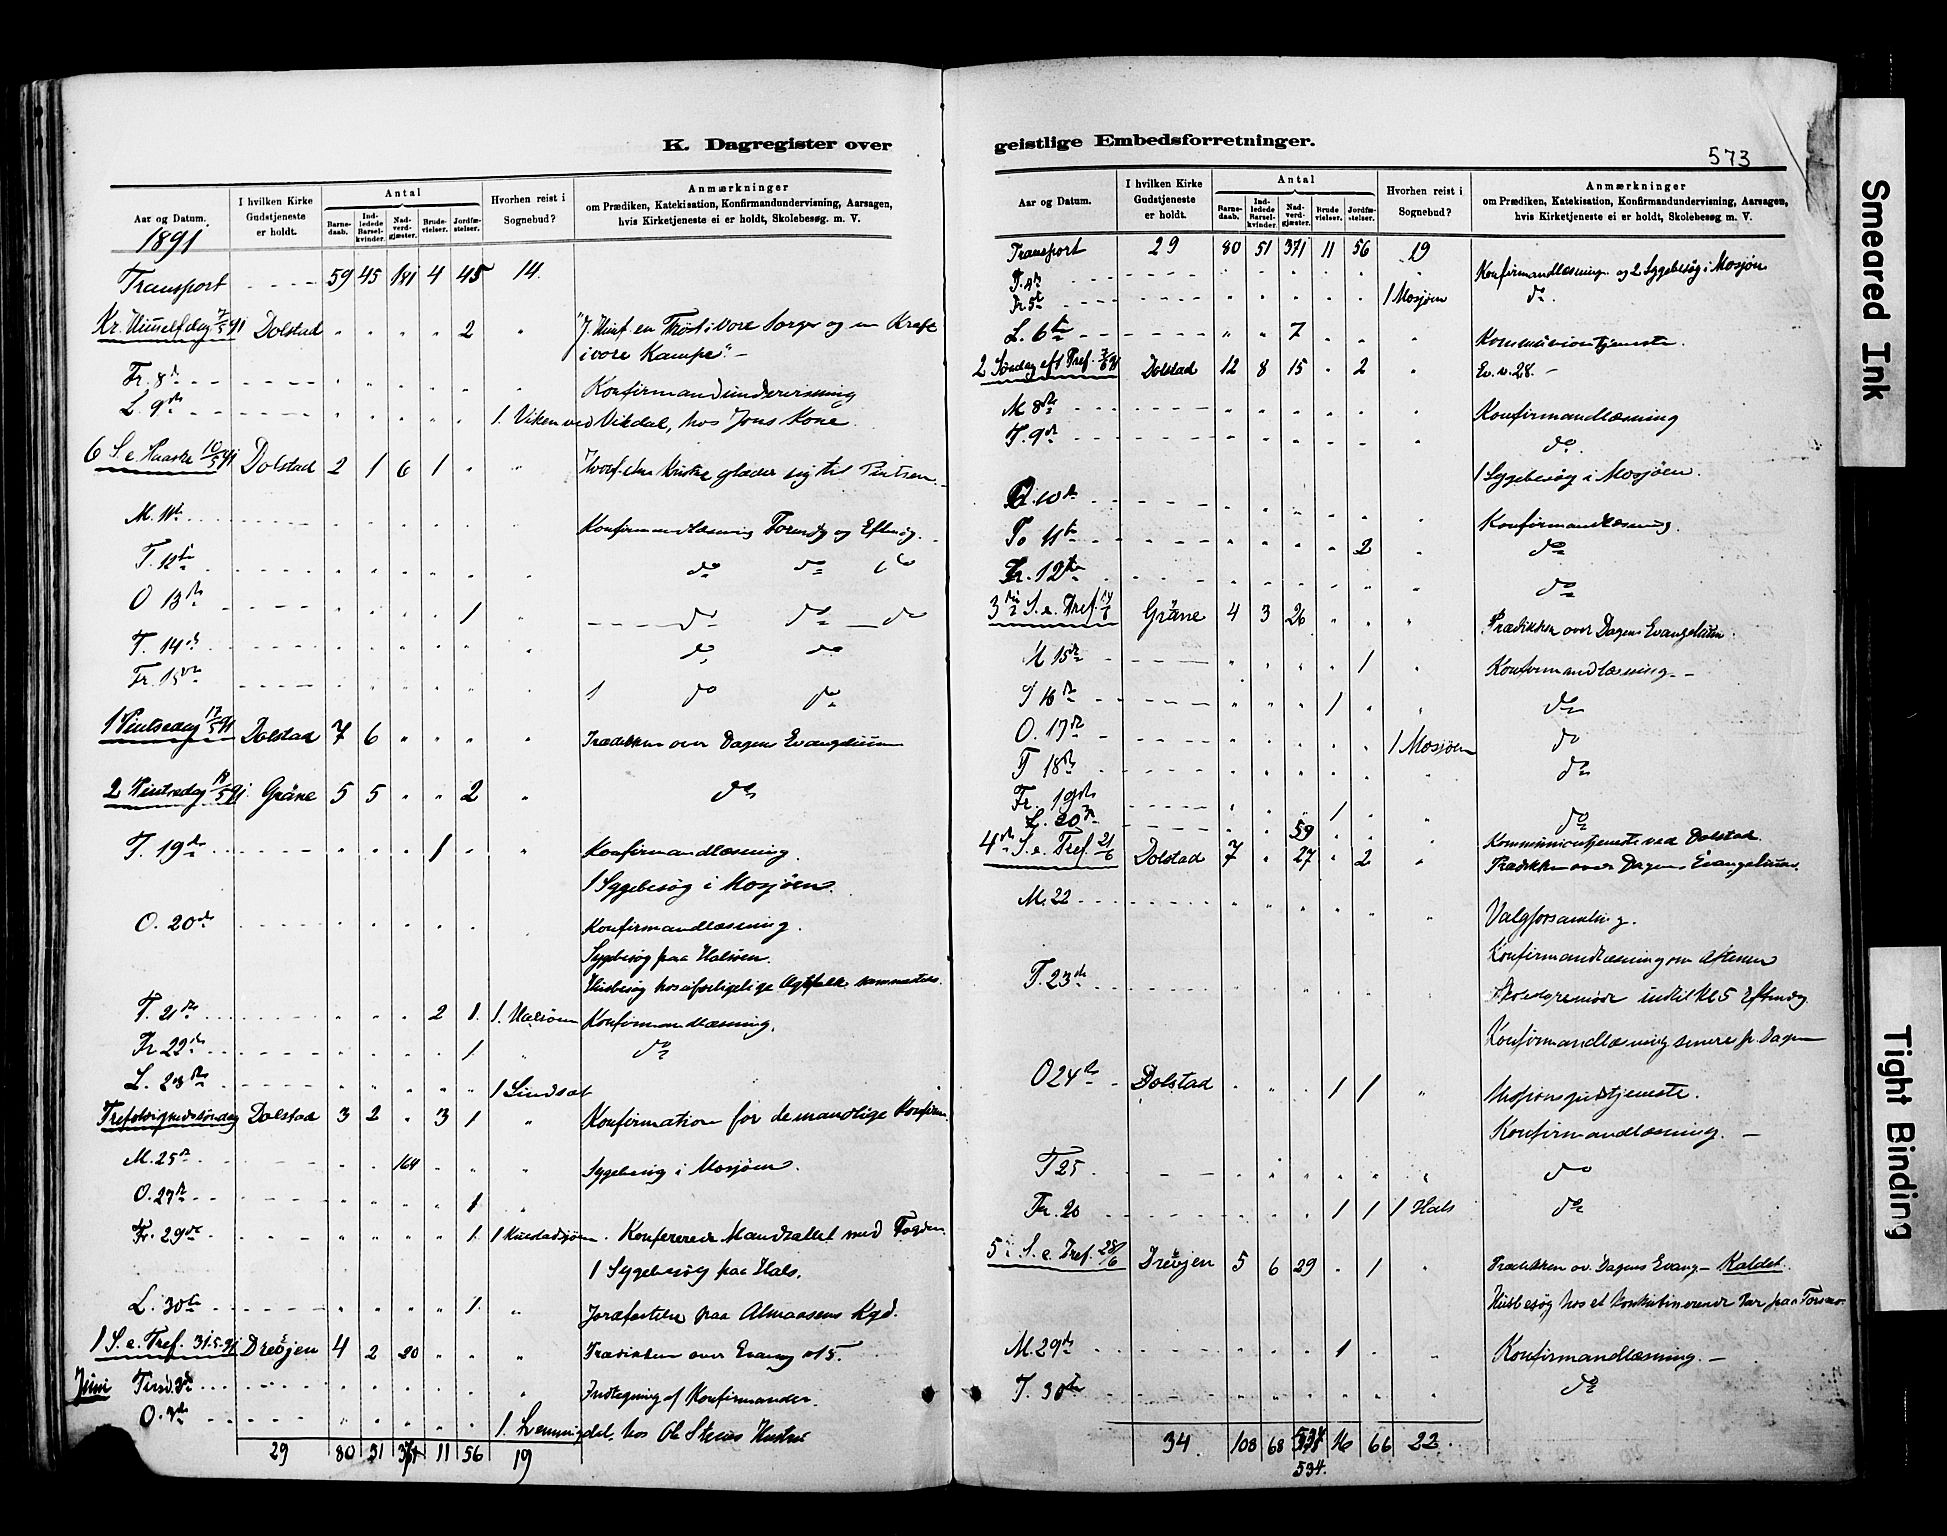 K. Dagregister over
Aar og Datum. 1891
I hvilken Kirke Gudstjeneste er holdt.
Antal
Barne-daab. Ind-ledede Barsel-kvinder. Nad-verd-gjæster. Brude-vielser. Jordfæ-stelser.
Hvorhen reist i Sognebud?
Anmærkninger
om Prædiken, Katekisation, Konfirmandundervisning, Aarsagen,
hvis Kirketjeneste ei er holdt, Skolebesøg. m. V.
Transport 59 45 181 4 45 14.
Kr. Himmelfdag 7/5 91 Dolstad 2 en Trøst i vore Sorger og en Kraft
i vore Kampe". -
Fr. 8de Konfirmandundervisning
L. 9de 1. Viken ved Vikdal, hos Jons Kone.
6 S. e. Paaske 10/5 91 Dolstad 2 1 6 1 glæder sig til Pintsen
M. 11te Konfirmandlæsning Formdg og Eftmdg.
T. 12te do do do
O 13de 1 do do do
T. 14de do do
Fr. 15de 1 do do
1 Pintsedag 17/5 91 Dolstad 7 6 Prædikken over Dagens Evangelium
2 Pintsedag 18/5 91 Gråne 5 5 2 do
T. 19de 1 Konfirmandlæsning.
1 Sygebesøg i Mosjøen.
O. 20de Konfirmandlæsning.
Sygebesøg paa Halsøen.
Husbesøg hos
T. 21de 2 1. 1. Halsøen Konfirmandlæsning.
Fr 22de 1 do
L. 23de 1 Lindset
Trefoldighedssøndag Dolstad 3 2 3 1 Konfirmation for de mandlige Konfirm.
M. 25de 164 Sygebesøg i Mosjøen.
O. 27de 1
Fr. 29de 1. 1 Konfererede Mandtallet med Fogden
1 Sygebesøg paa Hals.
L. 30te 1. Jordfæstelse paa Almaasens Kgd.
1 S. e. Tref. 31.5.91 Drevjen 4 2 20 Prædikken over Evang
Juni Tirsd. 2de Indtegning af Konfirmander.
O. 3de 1. hos Ole Hustru
29 80 51 371 11 56 19
geistlige Embedsforretninger.
573
Aar og Datum.
I hvilken Kirke Gudstjeneste er holdt.
Antal
Barne-daab. Ind-ledede Barsel-kvinder. Nad-verd-gjæster. Brude-vielser. Jordfæ-stelser.
Hvorhen reist i Sognebud?
Anmærkninger
om Prædiken, Katekisation, Konfirmandundervisning, Aarsagen,
hvis Kirketjeneste ei er holdt, Skolebesøg. m. V.
Transport 29 80 51 371 11 56 19
T. 4de Konfirmandlæsning og 2 Sygebesøg i Mosjøen
Fr. 5te 1 Mosjøen do.
L. 6te 7 Kommunionstjeneste.
2 Søndag eft Tref. 7/6 91 Dolstad 12 8 15 2 Ev. v. 28. -
M 8de Konfirmandlæsning
T. 9de do.
1 Sygebesøg i Mosjøen.
O. 10de Konfirmandlæsning.
To 11te 2 do
Fr. 12te do
3die S. e. Tref. 14/6 Gråne 4 3 26 Prædikken over Dagens Evangelium
M 15de 1 Konfirmandlæsning. -
T 16de 1 do
O. 17de 1 Mosjøen do
T 18de do
Fr. 19de 1 do
L. 20de 59 Kommuniontjeneste ved Dolstad.
4de S. e. Tref. 21/6 Dolstad 7 27 2 Prædikken over Dagens Evangelium.
M. 22 Valgforsamling.
Konfirmandlæsning om Aftenen
T. 23de indtil Kl 5 Eftmdg
Konfirmandlæsning senere p. Dagen
O 24de Dolstad 1 1 Missionsgudstjeneste.
Konfirmandlæsning. -
T 25 do
Fr. 26 1 1 1 Hals do
5te S. e. Tref. 28/6 Drevjen 5 6 29 1 Prædikken ov. Dagens Evang - Kaldet.
Husbesøg hos et konkubinerende Par paa
M. 29de 1 Konfirmandlæsning. -
T. 30te do
34. 108 68 534 16 66 22.
534.
Smeared Ink
Tight Binding